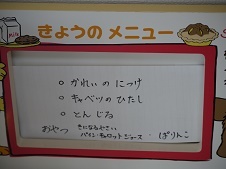 MILK
きょうの メニュー
○ かれいの につけ
○ キャベツの ひたし
○ とん じる
おやつ きになるやさい パイン・キャロットジュース ・ ぱりんこ